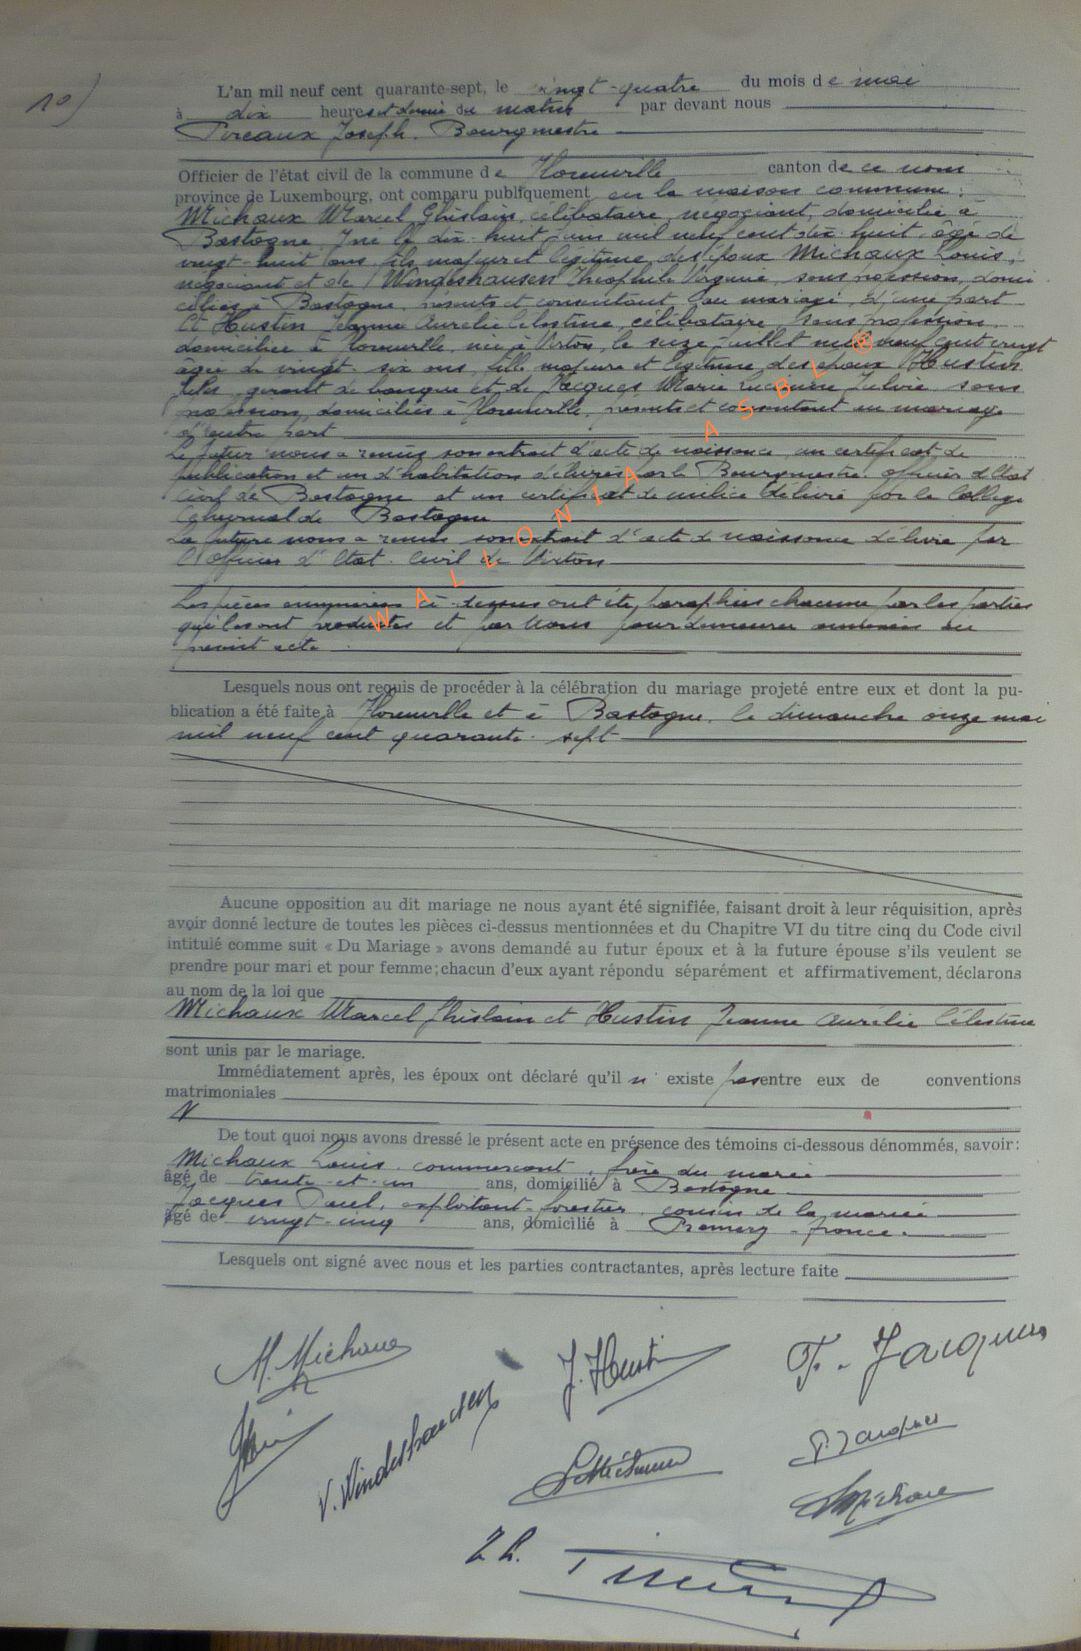 10)
L'an mil neuf cent quarante-sept, le vingt-quatre du mois de mai
à dix heures et demie du matin par devant nous
Joseph. Bourgmestre
Officier de l'état civil de la commune de Florenville canton de ce nom
province de Luxembourg, ont comparu publiquement en la maison commune :
Michaux Marcel Ghislain, célibataire, négociant, domicilié à
Bastogne, y né le dix-huit juin mil neuf cent dix-huit, âgé de
vingt-huit ans, fils majeur et légitime des époux Michaux Louis,
négociant et de Windeshausen Théophile Virginie, sans profession, domi
ciliés à Bastogne, présents et consentant au mariage, d'une part
Et Hustin Jeanne Aurélie Célestine, célibataire, sans profession
domiciliée à Florenville, née à Virton, le seize juillet mil neuf cent vingt
âgée de vingt-six ans, fille majeure et légitime des époux Hustin
Jules, gérant de banque et de Jacques Marie Lucienne Sylvie sans
profession, domiciliés à Florenville, présents et consentant au mariage
d'autre part
Le futur nous a remis son extrait d'acte de naissance, un certificat de
publication et un d'habitations délivrés par le Bourgmestre. officier d'Etat
Civil de Bastogne et un certificat de milice délivré par le Collège
Echevinal de Bastogne
La future nous a remis son extrait d'acte de naissance délivré par
l'Officier d'Etat-Civil de Virton
Les pièces énumérées ci-dessus ont été paraphées chacune par les parties
qui les ont produites et par Nous pour demeurer annexées au
présent acte.
Lesquels nous ont requis de procéder à la célébration du mariage projeté entre eux et dont la pu-
blication a été faite à Florenville et à Bastogne, le dimanche onze mai
mil neuf cent quarante-sept
Aucune opposition au dit mariage ne nous ayant été signifiée, faisant droit à leur réquisition, après
avoir donné lecture de toutes les pièces ci-dessus mentionnées et du Chapitre VI du titre cinq du Code civil
intitulé comme suit « Du Mariage » avons demandé au futur époux et à la future épouse s'ils veulent se
prendre pour mari et pour femme; chacun d'eux ayant répondu séparément et affirmativement, déclarons
au nom de la loi que
Michaux Marcel Ghislain et Hustin Jeanne Aurélie Célestine
sont unis par le mariage.
Immédiatement après, les époux ont déclaré qu'il n' existe pas entre eux de conventions
matrimoniales
De tout quoi nous avons dressé le présent acte en présence des témoins ci-dessous dénommés, savoir :
Michaux Louis, commerçant, frère du marié
âgé de trente-et-un ans, domicilié à Bastogne
Jacques Paul, exploitant-forestier, cousin de la mariée
âgé de vingt-cinq ans, domicilié à Premery - france.
Lesquels ont signé avec nous et les parties contractantes, après lecture faite
M. Michaux
J. Hustin
Jacques
V. Windeshausen
P. Jacques
Michaux
WALLONIA ASBL ®